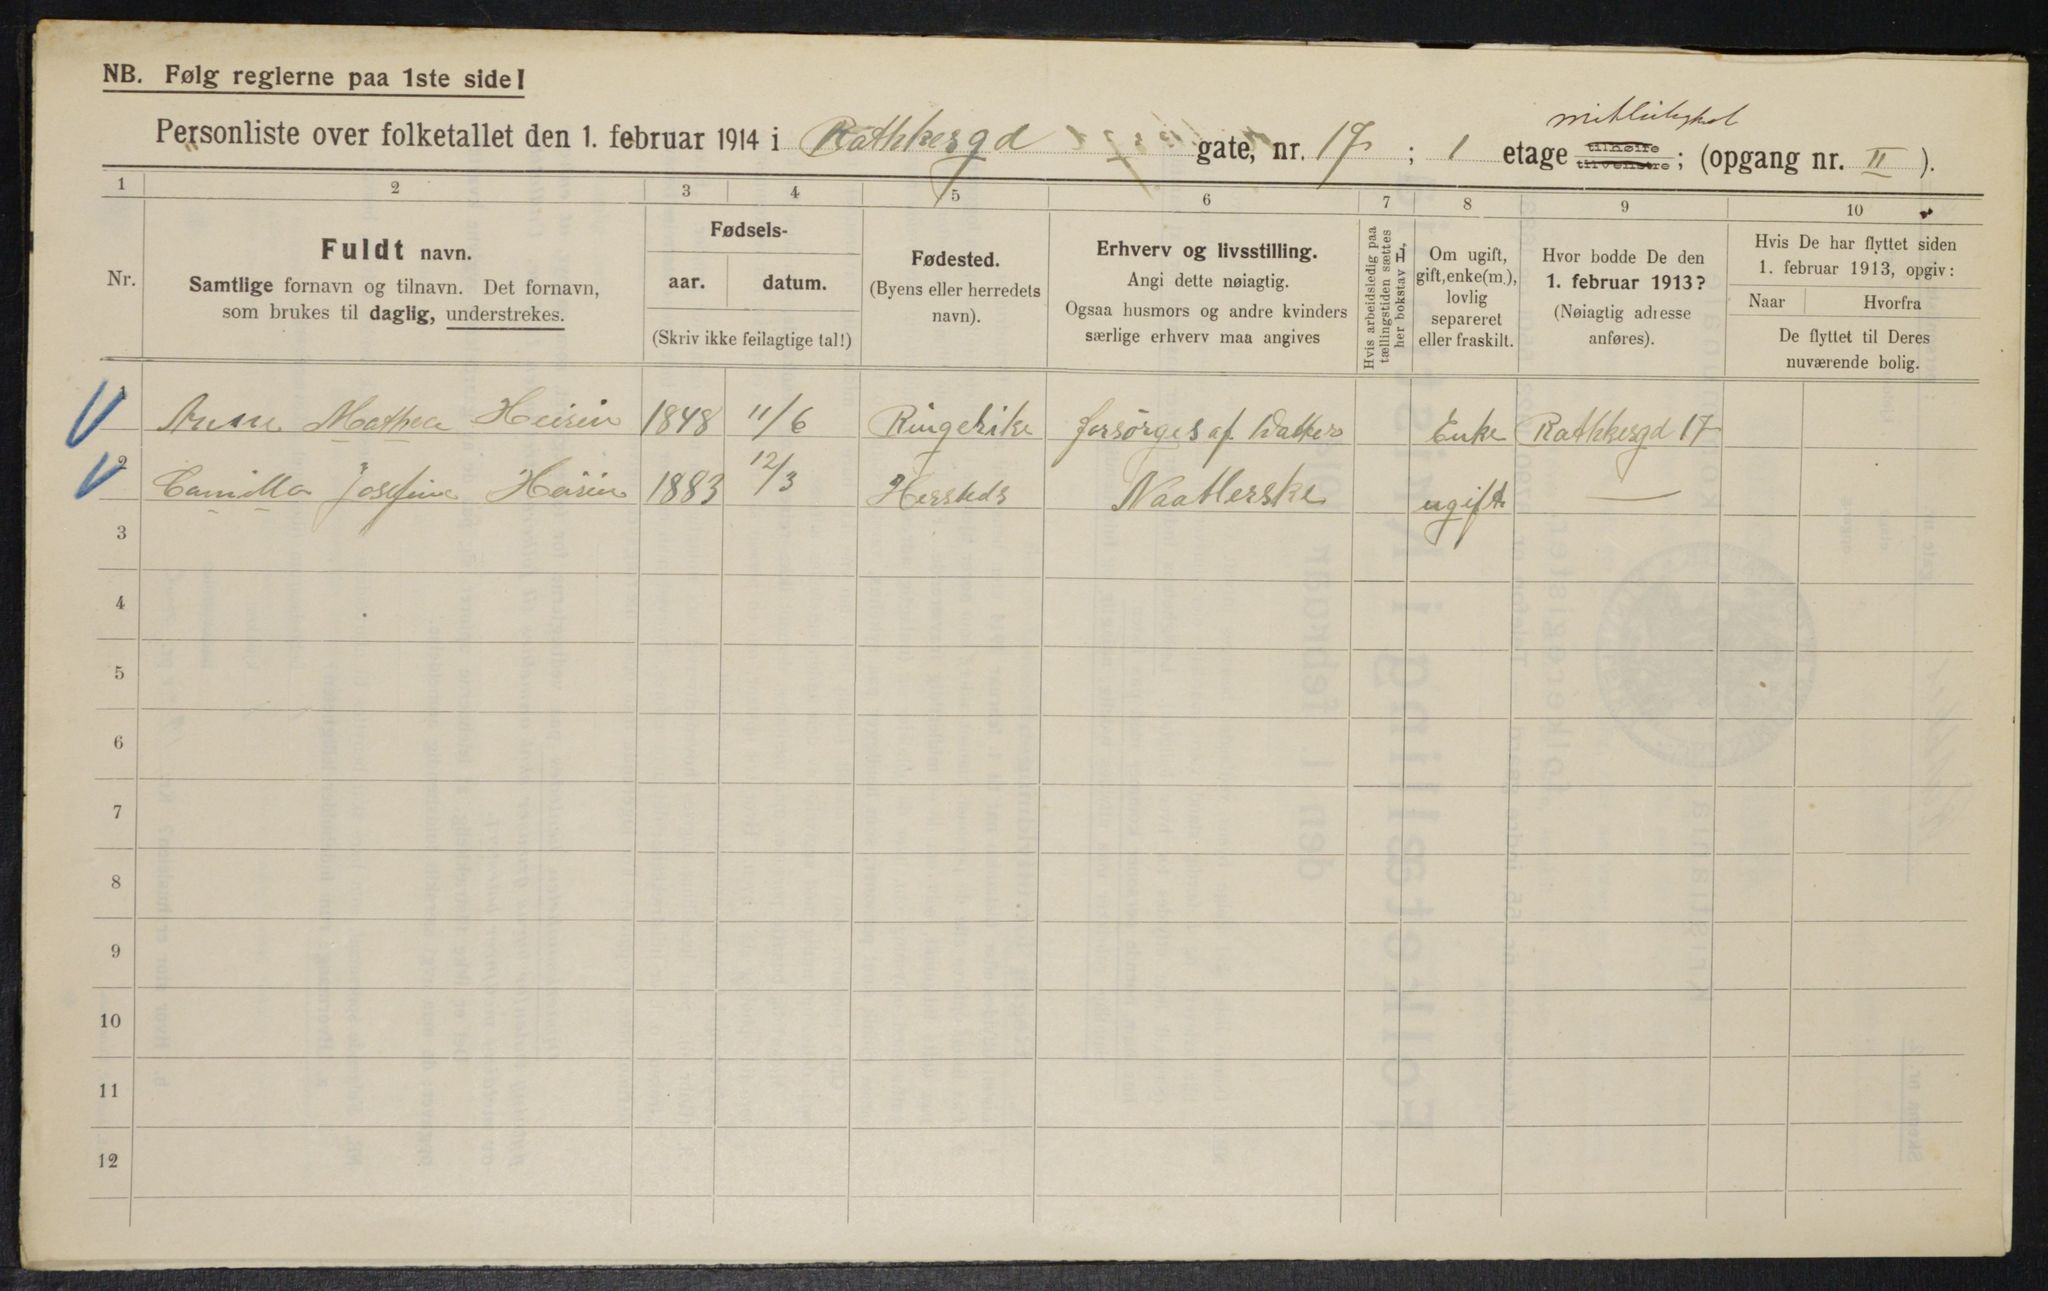 NB. Følg reglerne paa 1ste side!
Personliste over folketallet den 1. februar 1914 i Rathkesgd gate, nr. 17 ; 1 etage tilhøire tilvenstre; (opgang nr. II ).
1 2 3 4 5 6 7 8 9 10
Nr.
Fuldt navn.
Samtlige fornavn og tilnavn. Det fornavn,
som brukes til daglig, understrekes.
Fødsels-
aar. datum.
(Skriv ikke feilagtige tal!)
Fødested.
(Byens eller herredets
navn).
Erhverv og livsstilling.
Angi dette nøiagtig.
Ogsaa husmors og andre kvinders
særlige erhverv maa angives
Hvis arbeidsledig paa
tællingstiden sættes
her bokstav L,
Om ugift,
gift, enke(m.),
lovlig
separeret
eller fraskilt.
Hvor bodde De den
1. februar 1913?
(Nøiagtig adresse
anføres).
Hvis De har flyttet siden
1. februar 1913, opgiv:
Naar Hvorfra
De flyttet til Deres
nuværende bolig.
1 Anne Mathea 1848 11/6 Ringerike forsørges af Datter Enke Rathkesgd 17
2 Camilla Josefine 1883 12/3 Naatlerske ugift —
3
4
5
6
7
8
9
10
11
12